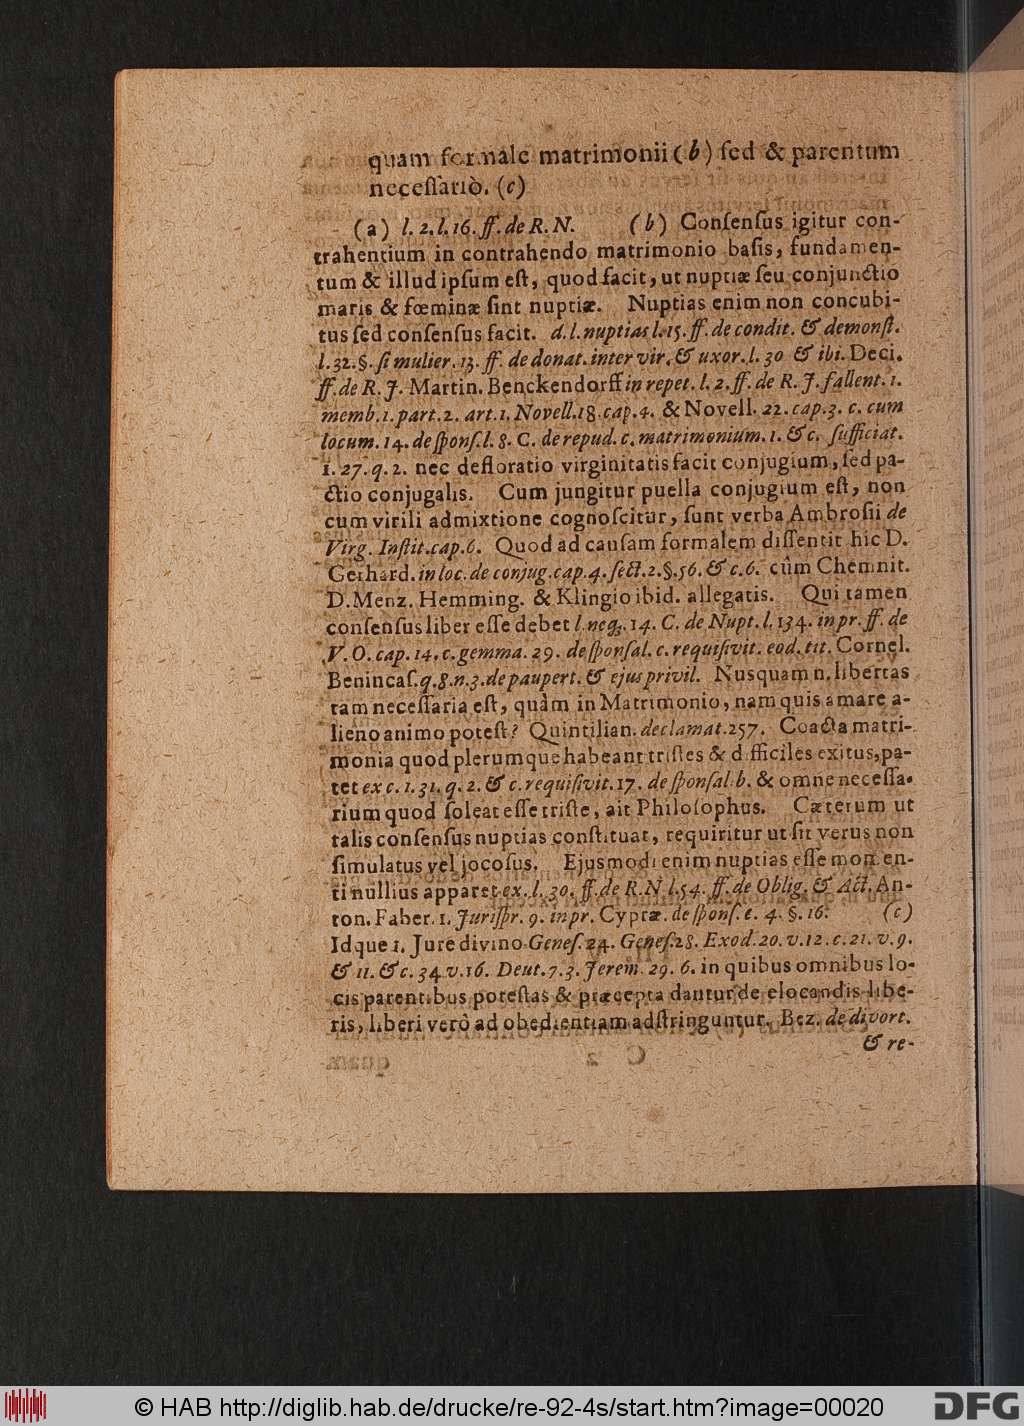 quam formale matrimonii (b) ſed & parentum
neceſſariò. (c)
(a) l. 2. l. 16. ff. de R. N. (b) Conſenſus igitur con-
trahentium in contrahendo matrimonio baſis, fundamen-
tum & illud ipſum eſt, quod facit, ut nuptiæ ſeu conjunctio
maris & fœminæ ſint nuptiæ. Nuptias enim non concubi-
tus ſed conſenſus facit. d. l. nuptias l. 15. ff. de condit. & demonſt.
l. 32. §. ſi mulier. 13. ff. de donat. inter vir. & uxor. l. 30 & ibi. Deci.
ff. de R. J. Martin. Benckendorff in repet. l. 2. ff. de R. J. fallent. 1.
memb. 1. part. 2. art. 1. Novell. 18. cap. 4. & Novell. 22. cap. 3. c. cum
locum. 14. de ſponſ. l. 8. C. de repud. c. matrimonium. 1. & c. ſufficiat.
1. 27. q. 2. nec defloratio virginitatis facit conjugium, ſed pa-
ctio conjugalis. Cum jungitur puella conjugium eſt, non
cum virili admixtione cognoſcitur, ſunt verba Ambroſii de
Virg. Inſtit. cap. 6. Quod ad cauſam formalem diſſentit hic D.
Gerhard. in loc. de conjug. cap. 4. ſect. 2. §. 56. & c. 6. cùm Chemnit.
D. Menz. Hemming. & Klingio ibid. allegatis. Qui tamen
conſenſus liber eſſe debet l. neq;. 14. C. de Nupt. l. 134. in pr. ff. de
V. O. cap. 14. c. gemma. 29. de ſponſal. c. requiſivit. eod. tit. Cornel.
Benincaſ. q. 8. n. 3. de paupert. & ejus privil. Nusquam n. libertas
tam neceſſaria eſt, quàm in Matrimonio, nam quis amare a-
lieno animo poteſt? Quintilian. declamat. 257. Coacta matri-
monia quod plerumque habeant triſtes & difficiles exitus, pa-
tet ex c. 1. 31. q. 2. & c. requiſivit. 17. de ſponſalib. & omne neceſſa-
rium quod ſoleat eſſe triſte, ait Philoſophus. Cæterum ut
talis conſenſus nuptias conſtituat, requiritur ut ſit verus non
ſimulatus vel jocoſus. Ejusmodi enim nuptias eſſe mom en-
ti nullius apparet ex. l. 30. ff. de R. N. l. 54. ff. de Oblig. & Act. An-
ton. Faber. 1. Juriſpr. 9. in pr. Cypræ. de ſponſ. c. 4. §. 16. (c)
Idque 1. Jure divino Geneſ. 24. Geneſ. 28. Exod. 20. v. 12. c. 21. v. 9.
& 11. & c. 34 v. 16. Deut. 7. 3. Jerem. 29. 6. in quibus omnibus lo-
cis parentibus poteſtas & præcepta dantur de elocandis libe-
ris, liberi verò ad obedientiam adſtringuntur. Bez. de divort.
& re-
© HAB http://diglib.hab.de/drucke/re-92-4s/start.htm?image=00020
DFG